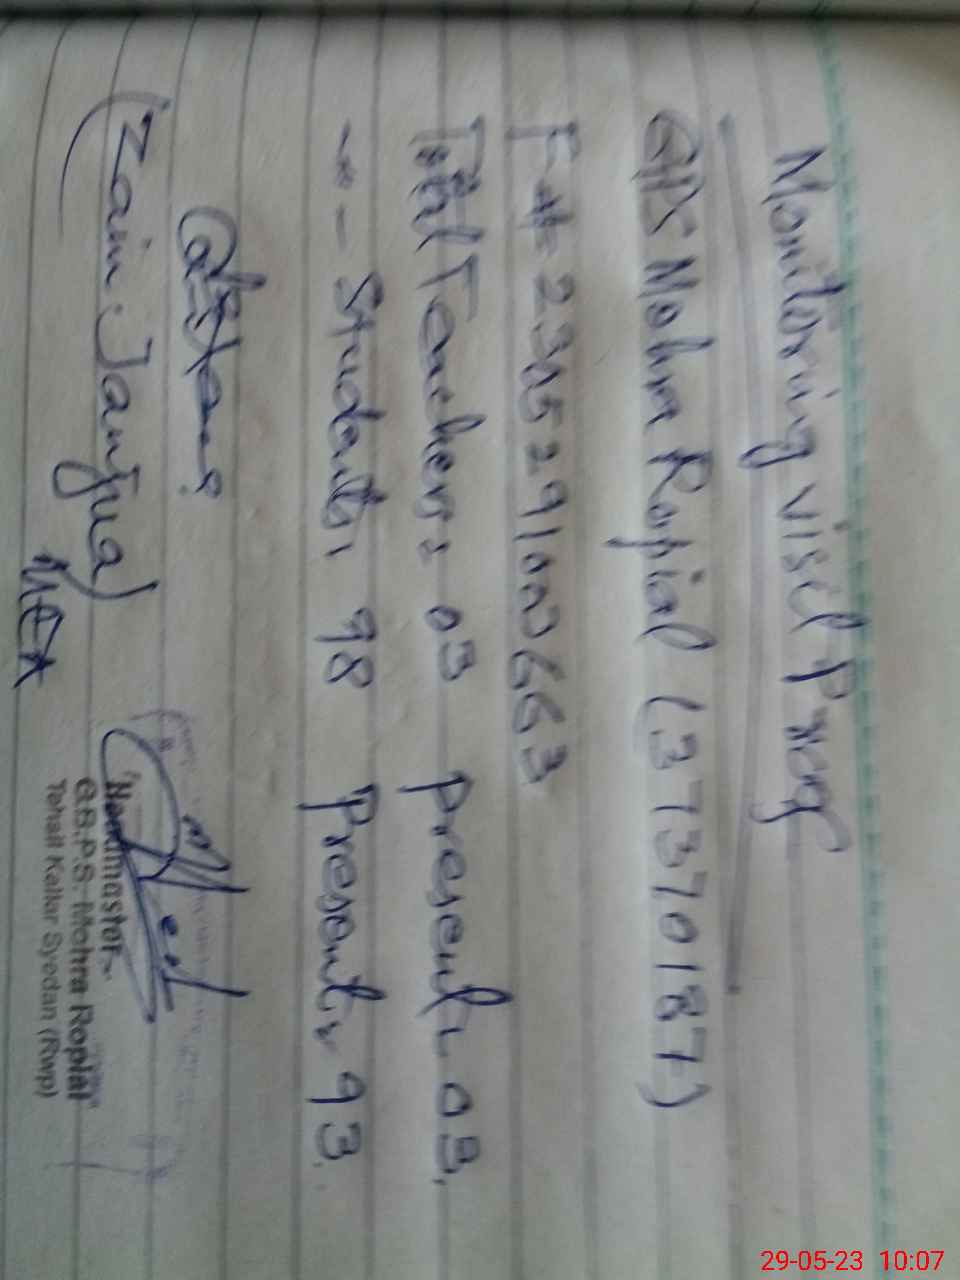 Monitoring visit Proof
GPS Mohra Ropial (37370187)
F# 2315291003663
Total Teachers = 03 present = 03,
-〃- Students = 98 Present = 93.
(Zain Janjua)
MEA
Headmaster
G.B.P.S. Mohra Ropial
Tehsil Kallar Syedan (Rwp)
29-05-23 10:07